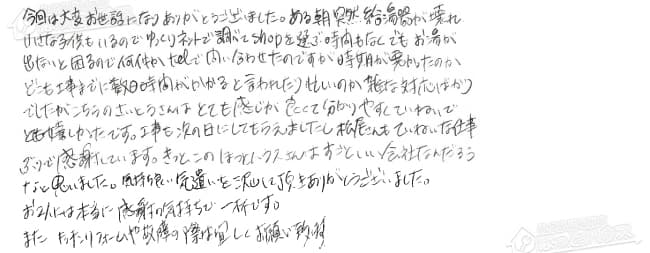 今回は大変お世話になりありがとうございました。ある朝突然給湯器が壊れ
小さな子供もいるのでゆっくりネットで調べてshopを選ぶ時間もなくでもお湯が
出ないと困るので何件かtelで問い合わせたのですが時期が悪かったのか
どこも工事までに数日時間がかかると言われたり忙しいのか雑な対応ばかり
でしたがこちらのさいとうさんはとても感じが良くて分かりやすくていねいで
とても嬉しかったです。工事も次の日にしてもらえましたし松尾さんもていねいな仕事
ぶりで感謝しています。きっとこのほっとハウスさんはすごくいい会社なんだろう
なと思いました。気持ち良い気遣いを沢山して頂きありがとうございました。
お2人には本当に感謝の気持ちで一杯です。
また リフォームや故障の際は宜しくお願い致します